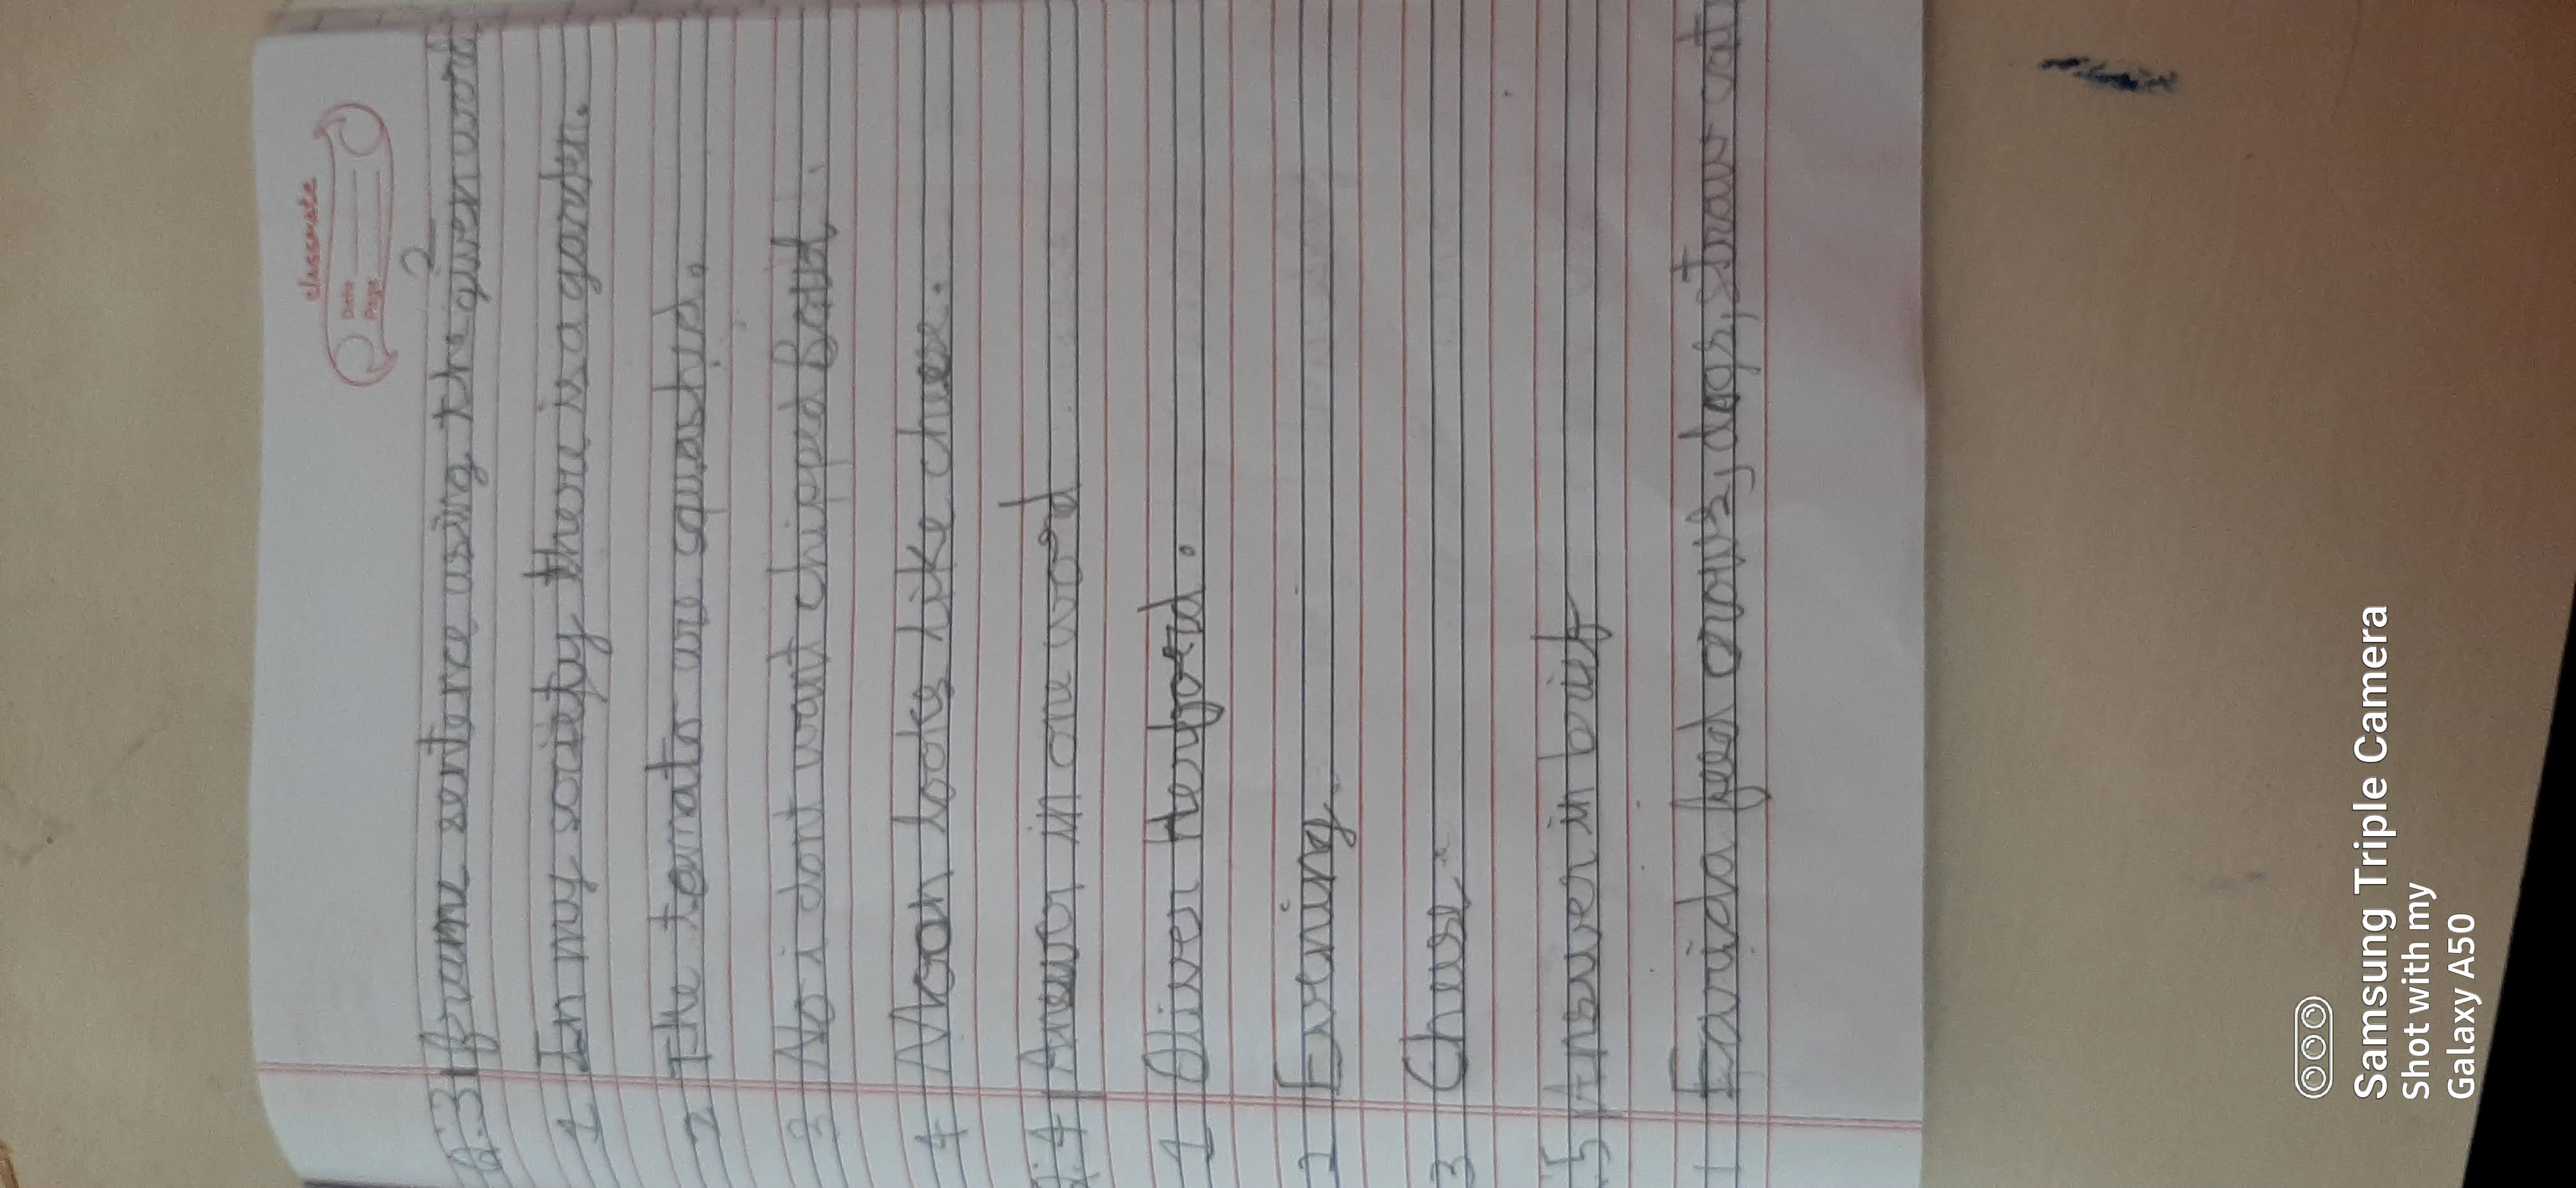 classmate
Date
Page
2
Q.3 frame sentence using the given word
1 In my society there is a garden.
2 The tomato are squashed.
3 No i dont want chipped
4 Moon looks like cheese.
Q.4 Answer in one word
1 Oliver Herfoerd.
2 Evening.
3 Cheese.
.5 Answer in brief
1 Farida feed crows, dogs, straw cat
Samsung Triple Camera
Shot with my
Galaxy A50